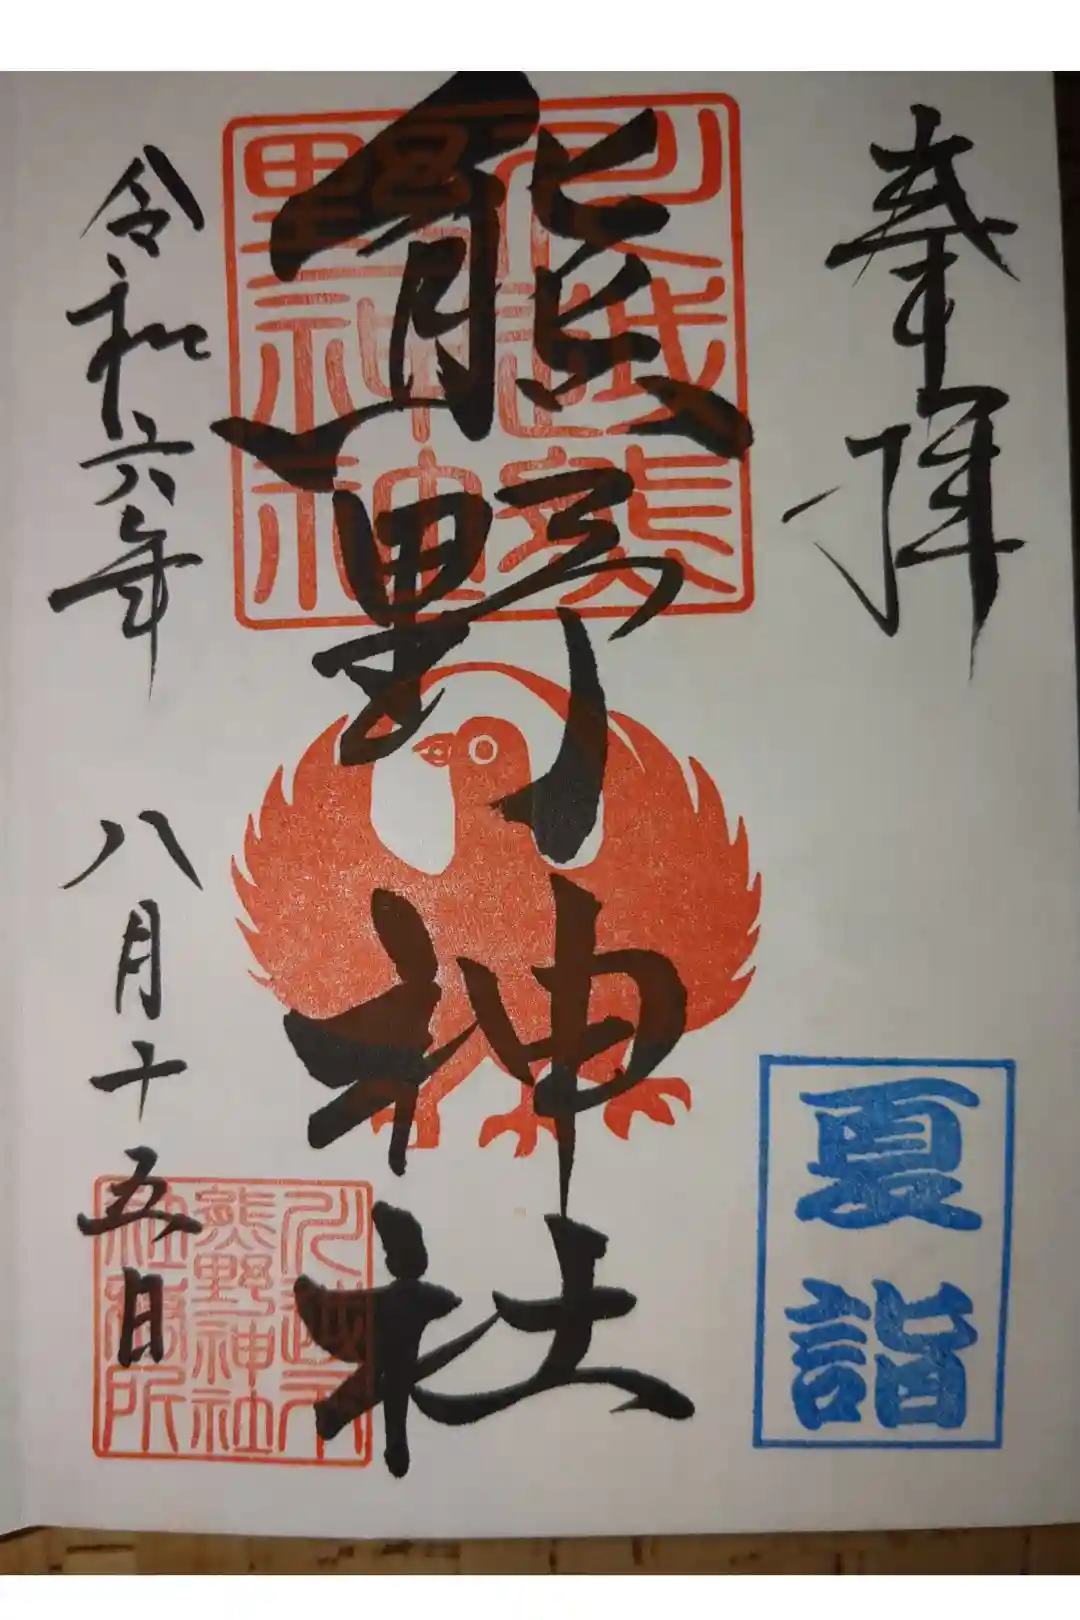 奉拝
夏詣
川越熊
野神社
熊野神社
川越市
熊野神社
社務所
令和六年 八月十五日